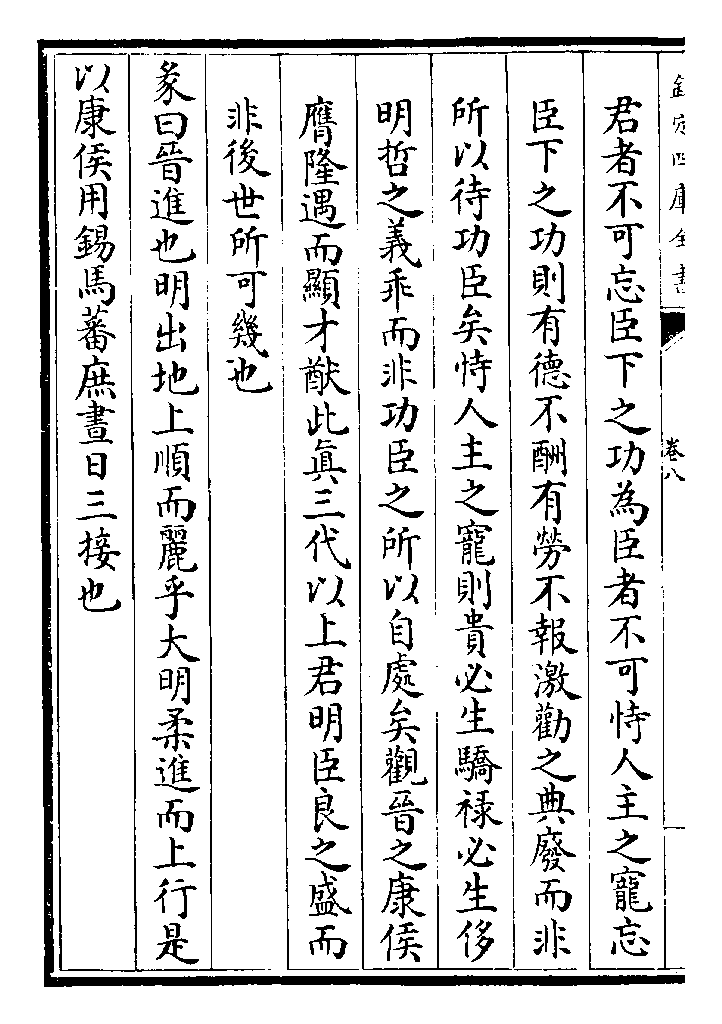 欽定四庫全書
卷八
君者不可忘臣下之功為臣者不可恃人主之寵忘
臣下之功則有德不酬有勞不報激勸之典廢而非
所以待功臣矣恃人主之寵則貴必生驕祿必生侈
明哲之義乖而非功臣之所以自處矣觀晉之康侯
膺隆遇而顯才猷此真三代以上君明臣良之盛而
非後世所可幾也
彖曰晉進也明出地上順而麗乎大明柔進而上行是
以康侯用錫馬蕃庶晝日三接也